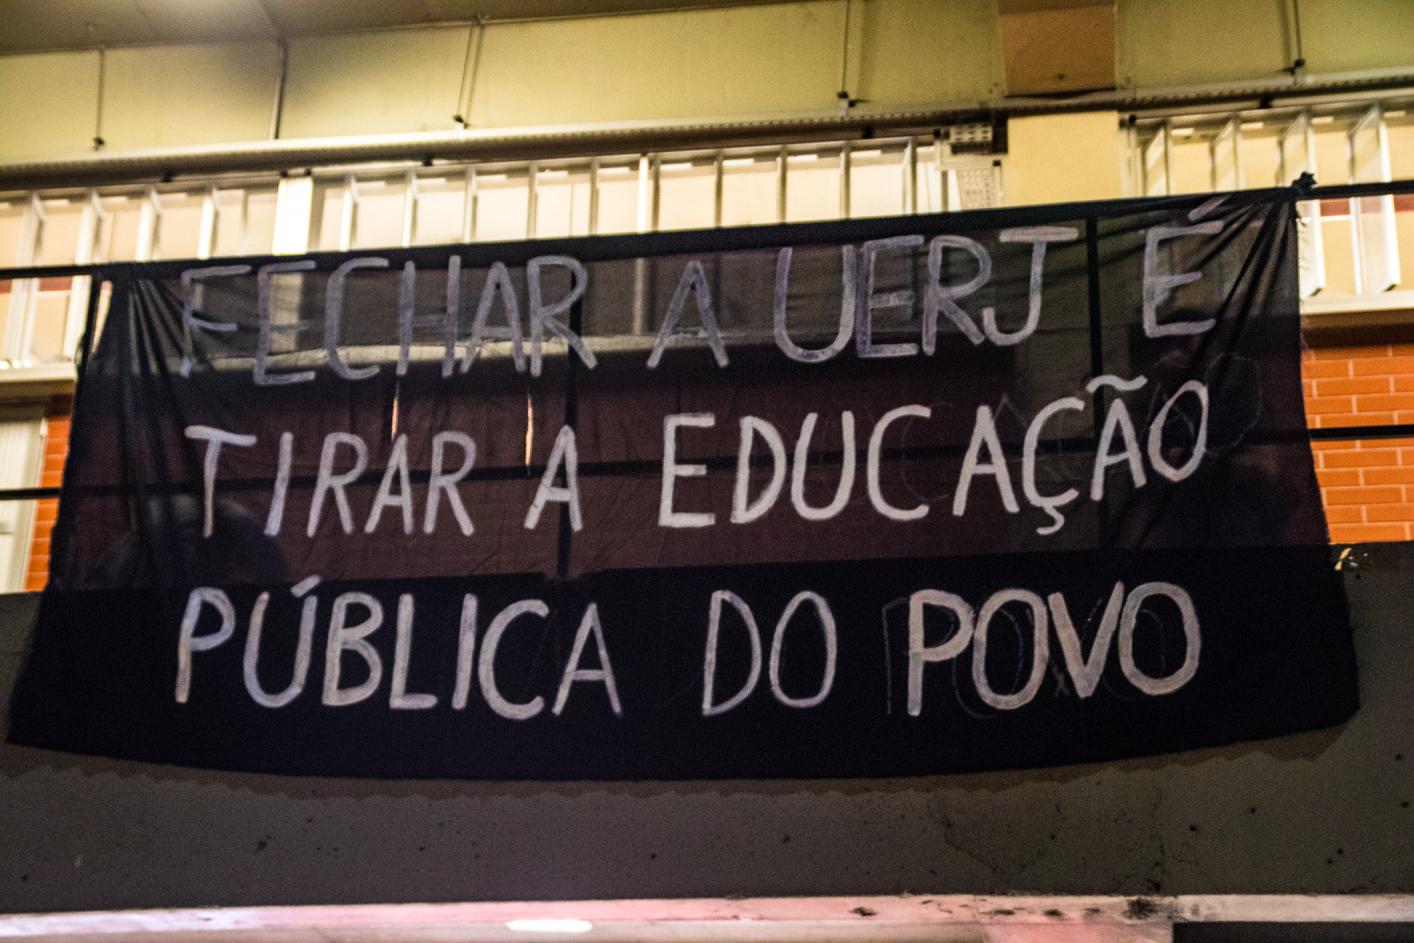 FECHAR A UERJ É
TIRAR A EDUCAÇÃO
PÚBLICA DO POVO